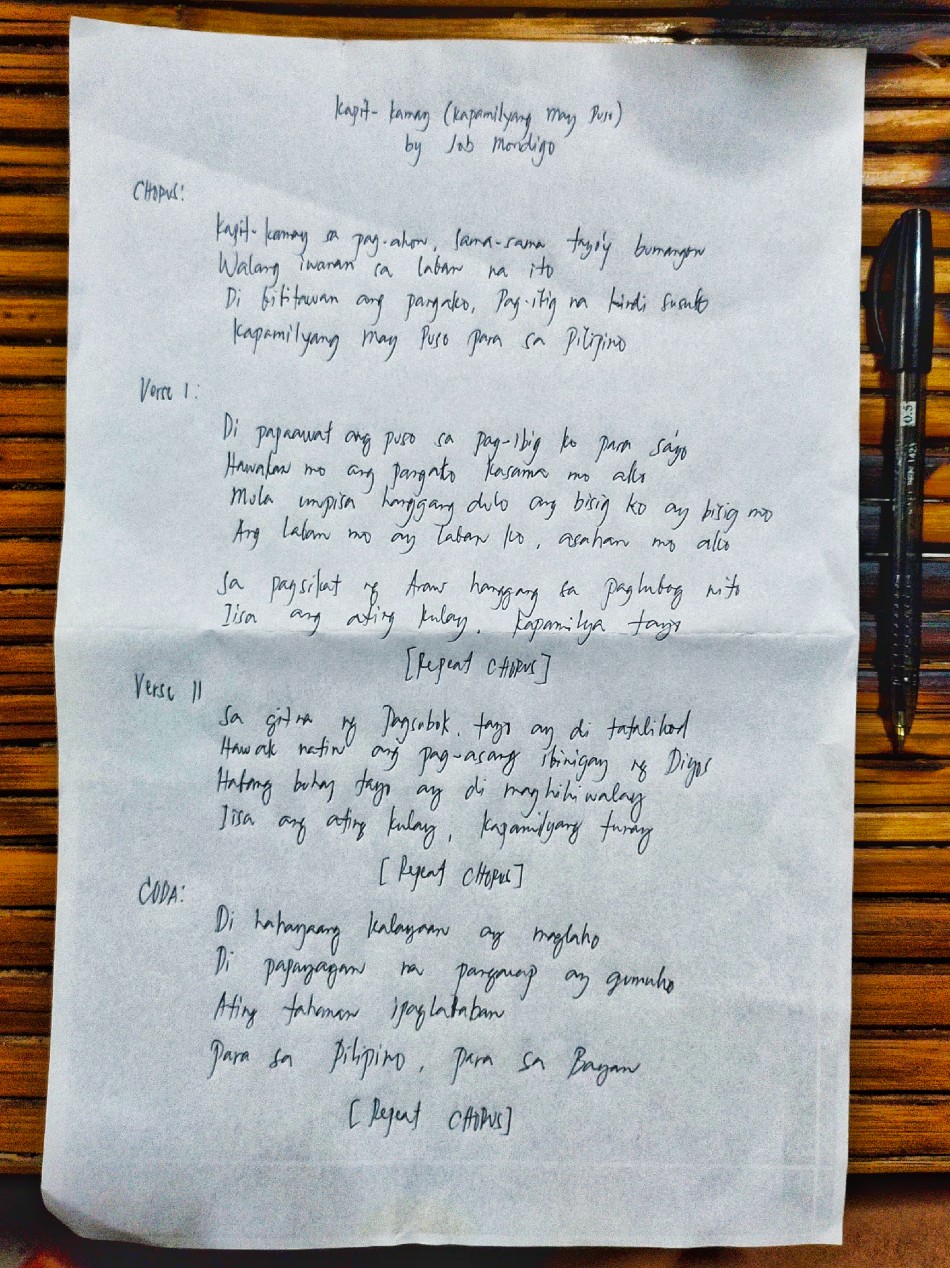 Kapit-kamay (Kapamilyang may Puso)
by Job Mondigo
CHORUS:
Kapit-kamay sa pag-ahon, sama-sama tayo'y bumangon
Walang iwanan sa laban na ito
Di bibitawan ang pangako, Pag-ibig na hindi susuko
Kapamilyang may Puso para sa Pilipino
Verse I:
Di papaawat ang puso sa pag-ibig ko para sa'yo
Hawakan mo ang pangako kasama mo ako
Mula umpisa hanggang dulo ang bisig ko ay bisig mo
Ang laban mo ay laban ko, asahan mo ako
Sa pagsikat ng Araw hanggang sa paglubog nito
Iisa ang ating kulay, kapamilya tayo
[Repeat CHORUS]
Verse II
Sa gitna ng Pagsubok, tayo ay di tatalikod
Hawak natin ang pag-asang ibinigay ng Diyos
Habang buhay tayo ay di maghihiwalay
Iisa ang ating kulay, kapamilyang tunay
[Repeat CHORUS]
CODA:
Di hahayaang kalayaan ay maglaho
Di papayagan na pangarap ay gumuho
Ating tahanan ipaglalaban
Para sa Pilipino, para sa Bayan
[Repeat CHORUS]
0.5